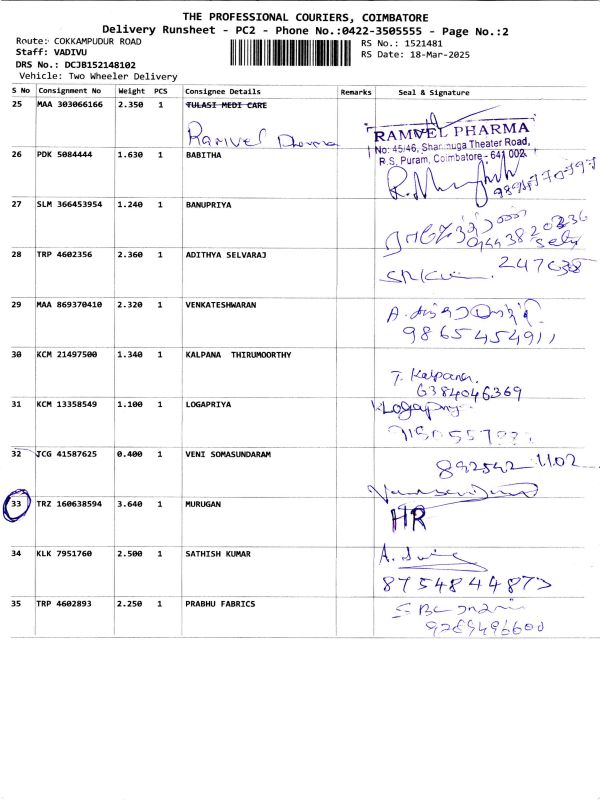 THE PROFESSIONAL COURIERS, COIMBATORE
Delivery Runsheet - PC2 - Phone No.:0422-3505555 - Page No.:2
Route: COKKAMPUDUR ROAD
RS No.: 1521481
Staff: VADIVU
RS Date: 18-Mar-2025
DRS No.: DCJB152148102
Vehicle: Two Wheeler Delivery
S No Consignment No Weight PCS Consignee Details Remarks Seal & Signature
25 MAA 303066166 2.350 1 TULASI MEDI CARE
Ramvel Pharma
RAMVEL PHARMA
No: 45/46, Shanmuga Theater Road,
R.S. Puram, Coimbatore - 641 002.
26 PDK 5084444 1.630 1 BABITHA
27 SLM 366453954 1.240 1 BANUPRIYA
28 TRP 4602356 2.360 1 ADITHYA SELVARAJ
247638
29 MAA 869370410 2.320 1 VENKATESHWARAN
9865454911
30 KCM 21497500 1.340 1 KALPANA THIRUMOORTHY
T. Kalpana.
6384046369
31 KCM 13358549 1.100 1 LOGAPRIYA
32 JCG 41587625 0.400 1 VENI SOMASUNDARAM
892542 1102
33 TRZ 160638594 3.640 1 MURUGAN
HR
34 KLK 7951760 2.500 1 SATHISH KUMAR
35 TRP 4602893 2.250 1 PRABHU FABRICS
9289496600